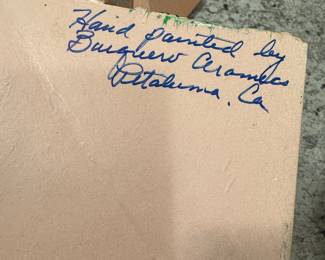 Hand painted by
Barquero Ceramics
Petaluma, Ca